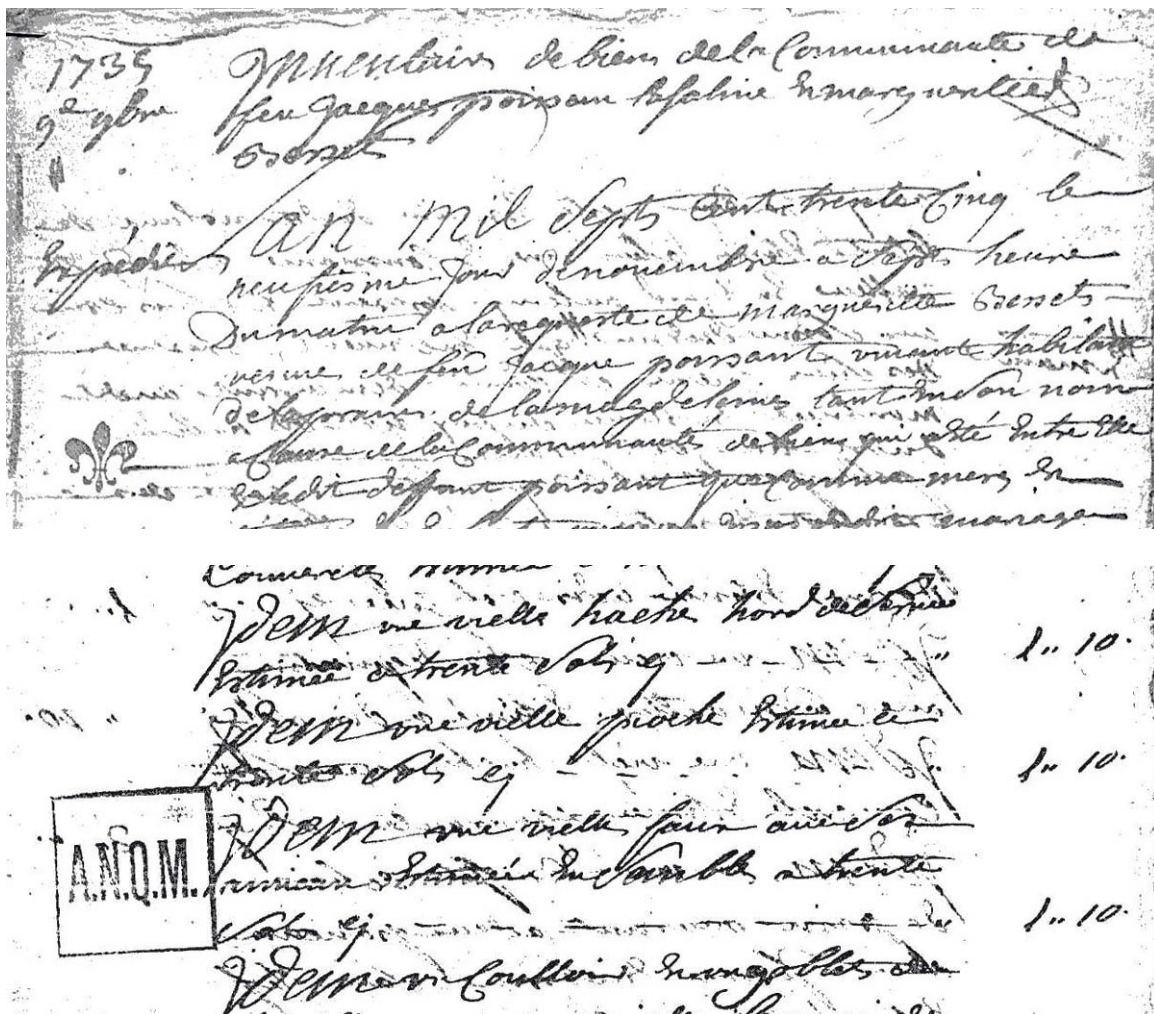 1735
9e 9bre
"
Inventaire de biens de la Communauté de
feu Jacques poissan Lasaline En marguerite
Bessets
Expédiée
L'an mil Septs Cent trente Cinq le
neufiesme Jour de novembre a Septs heure
Du matin a la requeste de marguerite Bessets
veuve de feu Jacque poissant vivant habitant
De la prairie de la magdelaine tant En Son nom
a Cause de la Communauté de biens qui a été Entre Elle
Et ledit deffunt poissant que comme mere Et
mariage
Couvercle
Idem une vielle hache hord de Service
Estimée a trente Sols cy 1 " 10.
Idem une vielle pioche Estimée a
trente Sols cy 1 " 10.
Idem une vielle faux avec Son
Estimée Ensemble a trente
Sols cy 1 " 10.
Idem un Coulloir Et un goblets de
A.N.Q.M.